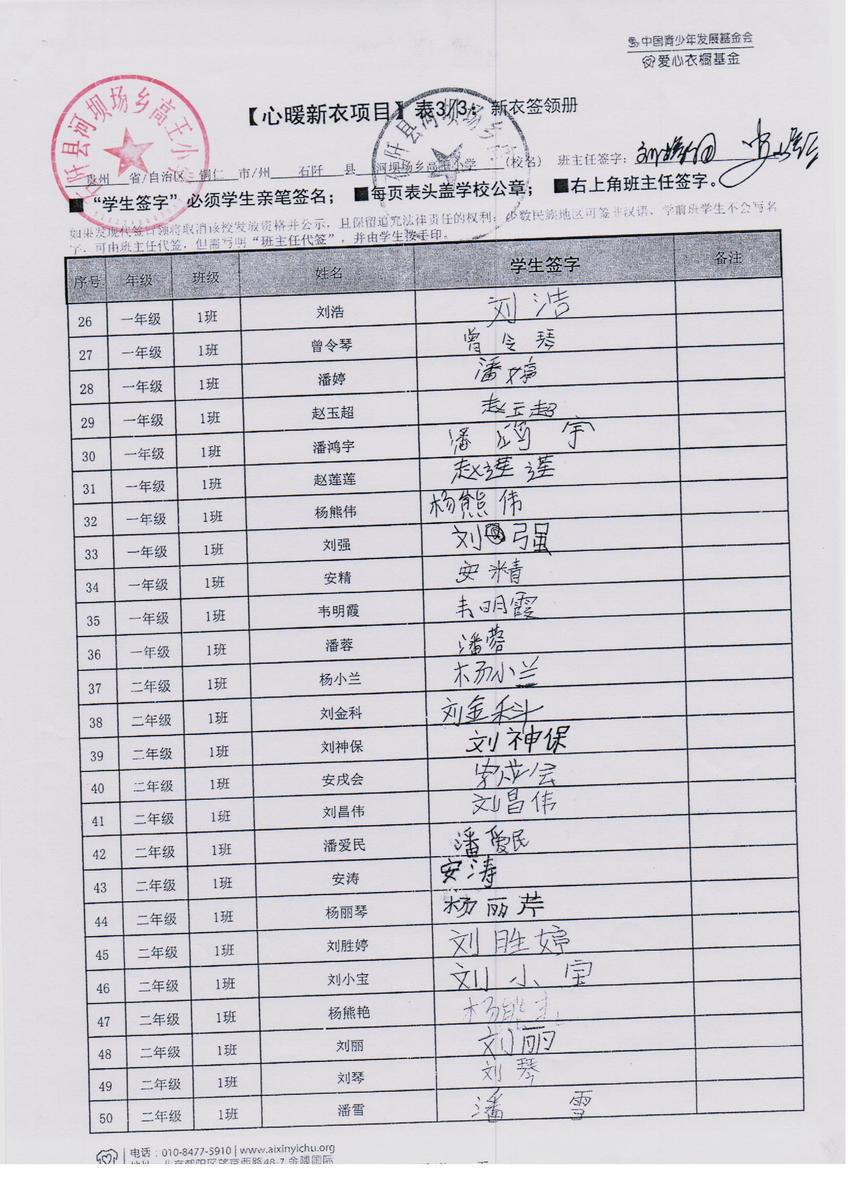 中国青少年发展基金会
爱心衣橱基金
【心暖新衣项目】表3/3：新衣签领册
石阡县河坝场乡高王小学
贵州 省/自治区 铜仁 市/州 石阡 县 河坝场乡高王小学 （校名） 班主任签字：
■“学生签字”必须学生亲笔签名； ■每页表头盖学校公章； ■右上角班主任签字。
如果发现代签冒领将取消该校发放资格并公示，且保留追究法律责任的权利；少数民族地区可签非汉语，学前班学生不会写名
字，可由班主任代签，但需写明“班主任代签”，并由学生按手印。
序号 年级 班级 姓名 学生签字 备注
26 一年级 1班 刘浩 刘浩
27 一年级 1班 曾令琴 曾令琴
28 一年级 1班 潘婷 潘婷
29 一年级 1班 赵玉超 赵玉超
30 一年级 1班 潘鸿宇 潘鸿宇
31 一年级 1班 赵莲莲 赵莲莲
32 一年级 1班 杨熊伟 杨熊伟
33 一年级 1班 刘强 刘强
34 一年级 1班 安精 安精
35 一年级 1班 韦明霞 韦明霞
36 一年级 1班 潘蓉 潘蓉
37 二年级 1班 杨小兰 杨小兰
38 二年级 1班 刘金科 刘金科
39 二年级 1班 刘神保 刘神保
40 二年级 1班 安戌会 安戌会
41 二年级 1班 刘昌伟 刘昌伟
42 二年级 1班 潘爱民 潘爱民
43 二年级 1班 安涛 安涛
44 二年级 1班 杨丽琴 杨丽芹
45 二年级 1班 刘胜婷 刘胜婷
46 二年级 1班 刘小宝 刘小宝
47 二年级 1班 杨熊艳 杨熊艳
48 二年级 1班 刘丽 刘丽
49 二年级 1班 刘琴 刘琴
50 二年级 1班 潘雪 潘雪
电话：010-8477-5910 | www.aixinyichu.org